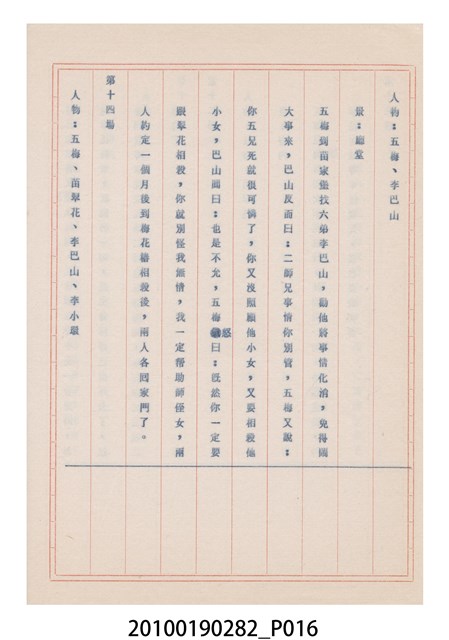 人物：五梅、李巴山
景：廳堂
五梅到苗家堡找六弟李巴山，勸他將事情化消，免得鬧
大事來，巴山反而曰：二師兄事情你別管，五梅又說：
你五兄死就很可憐了，你又沒照顧他小女，又要相殺他
小女，巴山面曰：也是不允，五梅怒曰：既然你一定要
跟翠花相殺，你就別怪我無情，我一定幫助師侄女，兩
人約定一個月後到梅花樁相殺後，兩人各回家門了。
第十四場
人物：五梅、苗翠花、李巴山、李小環
20100190282_P016